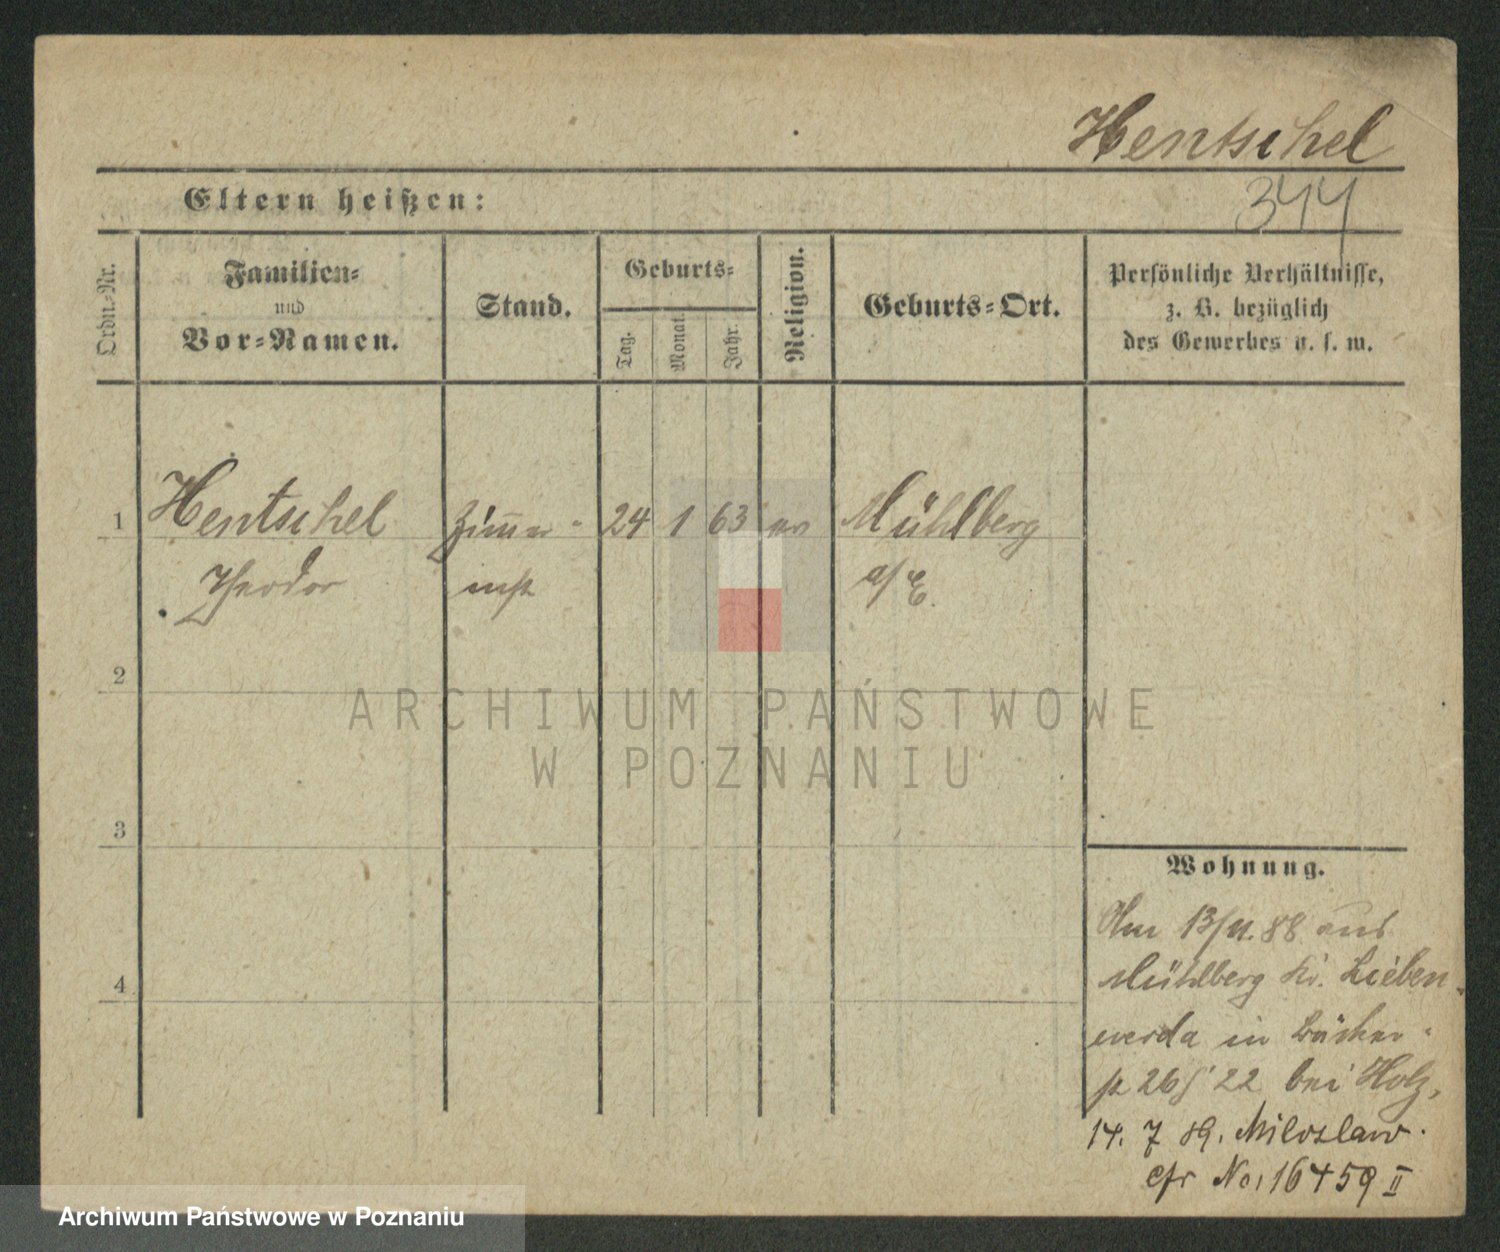 Hentschel
344
Eltern heißen:
Ordn.-Nr.
Familien-
und
Vor-Namen.
Stand.
Geburts-
Tag.
Monat.
Jahr.
Religion.
Geburts-Ort.
Persönliche Verhältnisse,
z. B. bezüglich
des Gewerbes u. s. w.
1 Hentschel Zimmer- 24 1 63 ev Mühlberg
Theodor a/E.
2
3
4
ARCHIWUM PAŃSTWOWE
W POZNANIU
Wohnung.
13/11.88 aus
Mühlberg Kr. Lieben-
werda in Bäcker-
26/22 bei Holz,
14. 7 89. Miloslaw.
cfr No. 16459 II
Archiwum Państwowe w Poznaniu